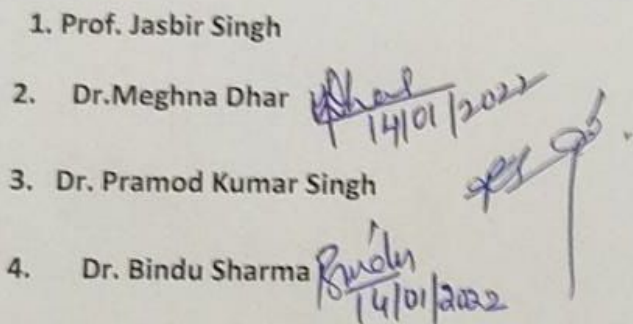 1. Prof. Jasbir Singh
2. Dr.Meghna Dhar Dhar
14/01/2022
3. Dr. Pramod Kumar Singh
4. Dr. Bindu Sharma Bindu
14/01/2022